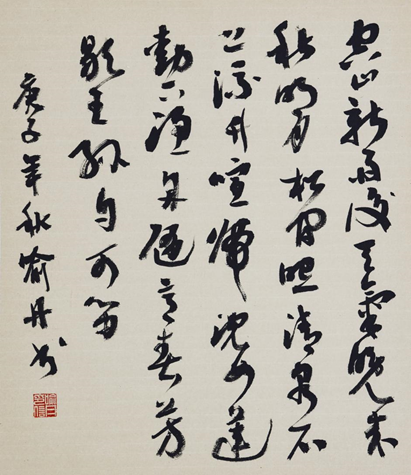 空山新雨後天氣晚来
秋明月松間照清泉石
上流竹喧歸浣女蓮
動下漁舟随意春芳
歇王孫自可留
庚子年秋喻丹书